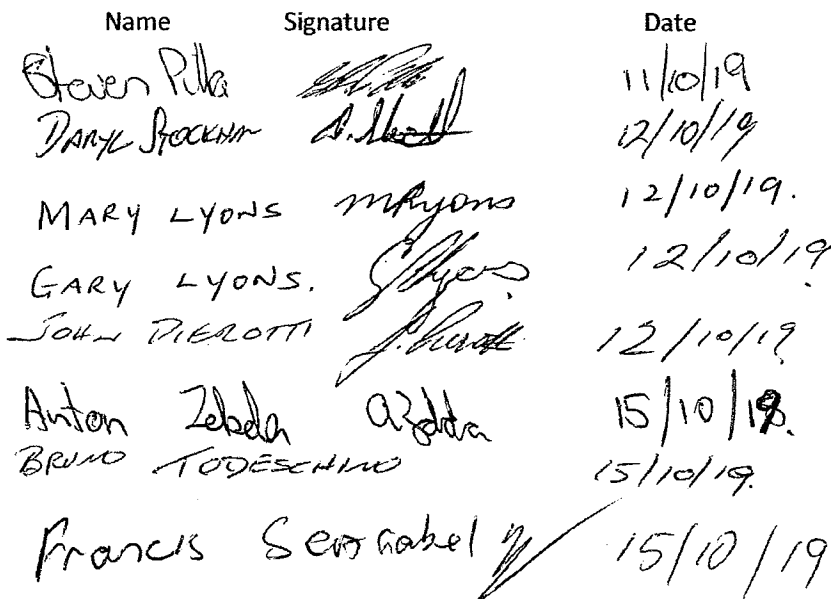 Name Signature Date
Steven Pitta 11/10/19
DARYL STOCKMAN 12/10/19
MARY LYONS MRyons 12/10/19.
GARY LYONS. 12/10/19.
JOHN PIEROTTI 12/10/19.
Anton Zebeda 15/10/19.
BRUNO TODESCHINO 15/10/19.
Francis 15/10/19